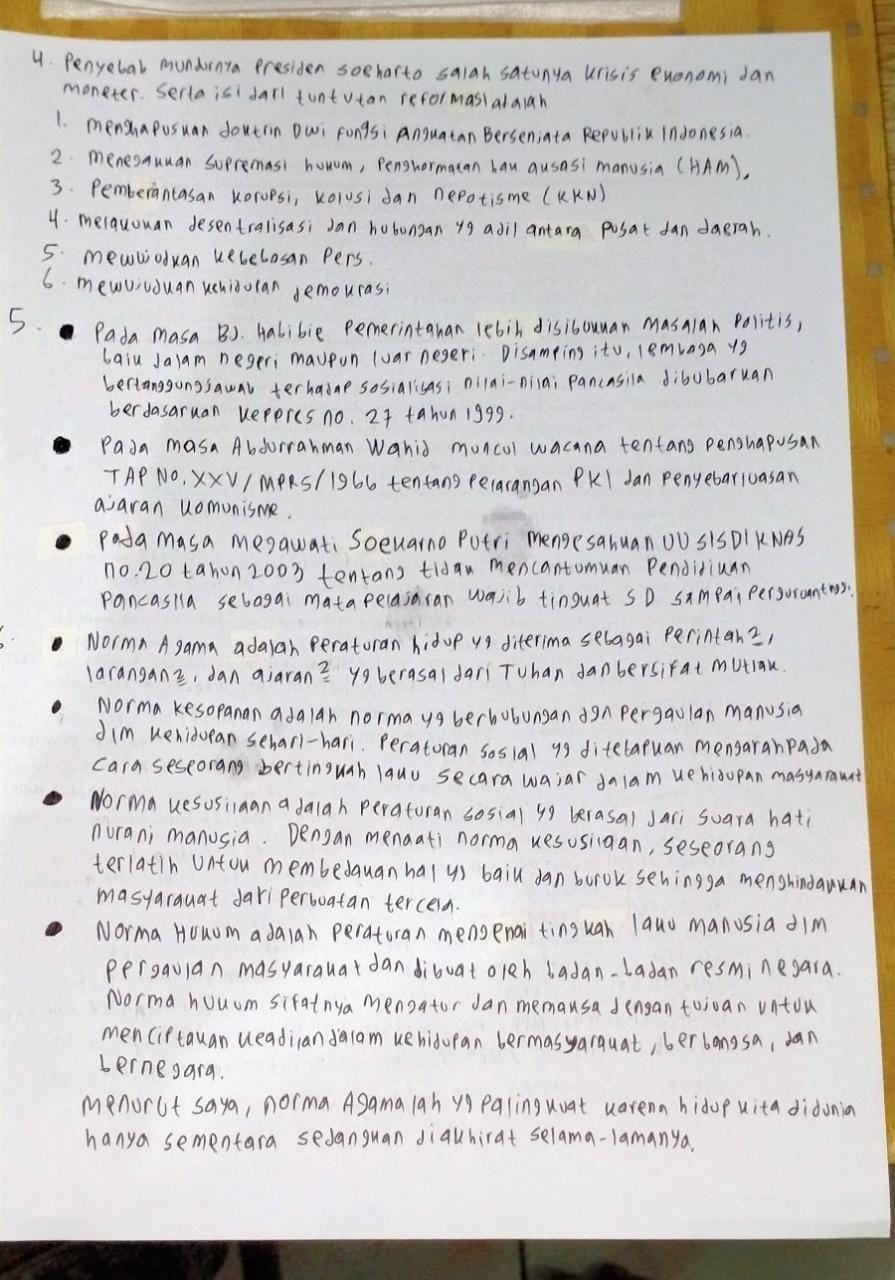 4. Penyebab mundurnya Presiden Soeharto salah satunya krisis ekonomi dan
moneter. Serta isi dari tuntutan reformasi adalah
1. menghapuskan doktrin Dwi Fungsi Angkatan Bersenjata Republik Indonesia.
2. menegakkan supremasi hukum, penghormatan hak asasi manusia (HAM),
3. Pemberantasan korupsi, kolusi dan nepotisme (KKN)
4. melakukan desentralisasi dan hubungan yg adil antara pusat dan daerah.
5. mewujudkan kebebasan Pers.
6. mewujudkan kehidupan demokrasi
5. • Pada masa BJ. Habibie pemerintahan lebih disibukkan masalah Politis,
baik dalam negeri maupun luar negeri. Disamping itu, lembaga yg
bertanggungjawab terhadap sosialisasi nilai-nilai Pancasila dibubarkan
berdasarkan kepres no. 27 tahun 1999.
• Pada masa Abdurrahman Wahid muncul wacana tentang penghapusan
TAP NO. XXV/MPRS/1966 tentang pelarangan PKI dan penyebarluasan
ajaran komunisme.
• Pada masa megawati Soekarno Putri mengesahkan UU SISDIKNAS
no.20 tahun 2003 tentang tidak mencantumkan Pendidikan
Pancasila sebagai mata pelajaran wajib tingkat SD sampai perguruan tinggi.
• Norma Agama adalah peraturan hidup yg diterima sebagai perintah2,
larangan2, dan ajaran2 yg berasal dari Tuhan dan bersifat mutlak.
• Norma kesopanan adalah norma yg berhubungan dgn pergaulan manusia
dlm kehidupan sehari-hari. Peraturan sosial yg ditetapkan mengarah pada
cara seseorang bertingkah laku secara wajar dalam kehidupan masyarakat
• Norma kesusilaan adalah peraturan sosial yg berasal dari suara hati
nurani manusia. Dengan menaati norma kesusilaan, seseorang
terlatih untuk membedakan hal yg baik dan buruk sehingga menghindarkan
masyarakat dari perbuatan tercela.
• Norma Hukum adalah peraturan mengenai tingkah laku manusia dlm
pergaulan masyarakat dan dibuat oleh badan-badan resmi negara.
Norma hukum sifatnya mengatur dan memaksa dengan tujuan untuk
menciptakan keadilan dalam kehidupan bermasyarakat, berbangsa, dan
bernegara.
menurut saya, norma Agamalah yg paling kuat karena hidup kita didunia
hanya sementara sedangkan diakhirat selama-lamanya.